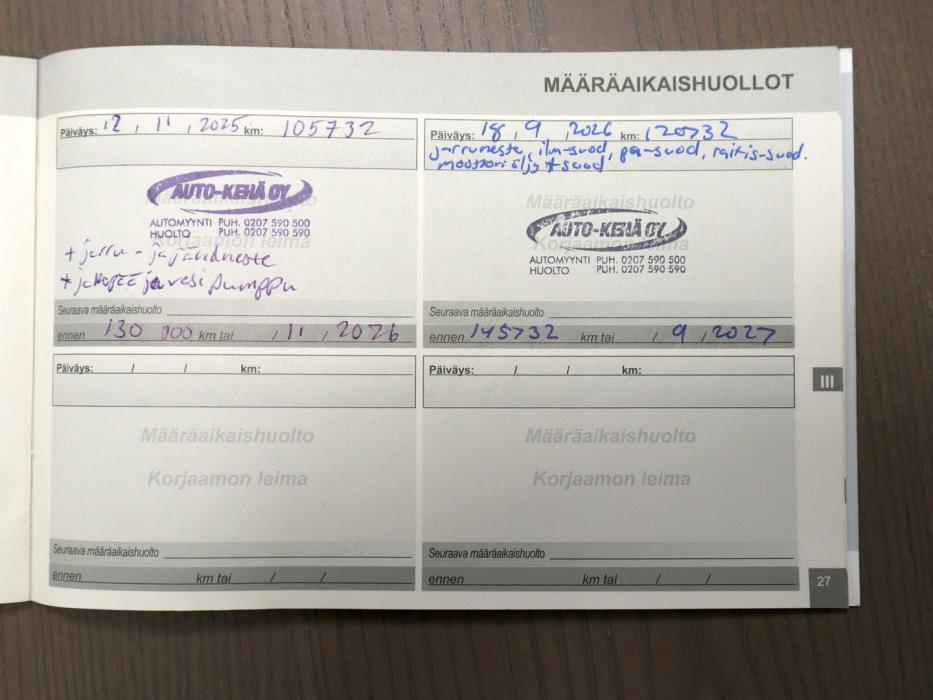 MÄÄRÄAIKAISHUOLLOT
Päiväys: 12 / 11 / 2025 km: 105732
Määräaikaishuolto
AUTO-KEHÄ OY
AUTOMYYNTI PUH. 0207 590 500
HUOLTO PUH. 0207 590 590
Korjaamon leima
+ jarru- ja
+ ja vesi pumppu
Seuraava määräaikaishuolto
ennen 130 000 km tai / 11 / 2026
Päiväys: 18 / 9 / 2026 km: 120732
jarruneste, ilm-suod, pa-suod, raitis-suod.
moottoriöljy + suod
Määräaikaishuolto
AUTO-KEHÄ OY
Korjaamon leima
AUTOMYYNTI PUH. 0207 590 500
HUOLTO PUH. 0207 590 590
Seuraava määräaikaishuolto
ennen 145732 km tai / 9 / 2027
Päiväys: / / km:
Määräaikaishuolto
Korjaamon leima
Seuraava määräaikaishuolto
ennen km tai / /
Päiväys: / / km:
Määräaikaishuolto
Korjaamon leima
Seuraava määräaikaishuolto
ennen km tai / /
III
27